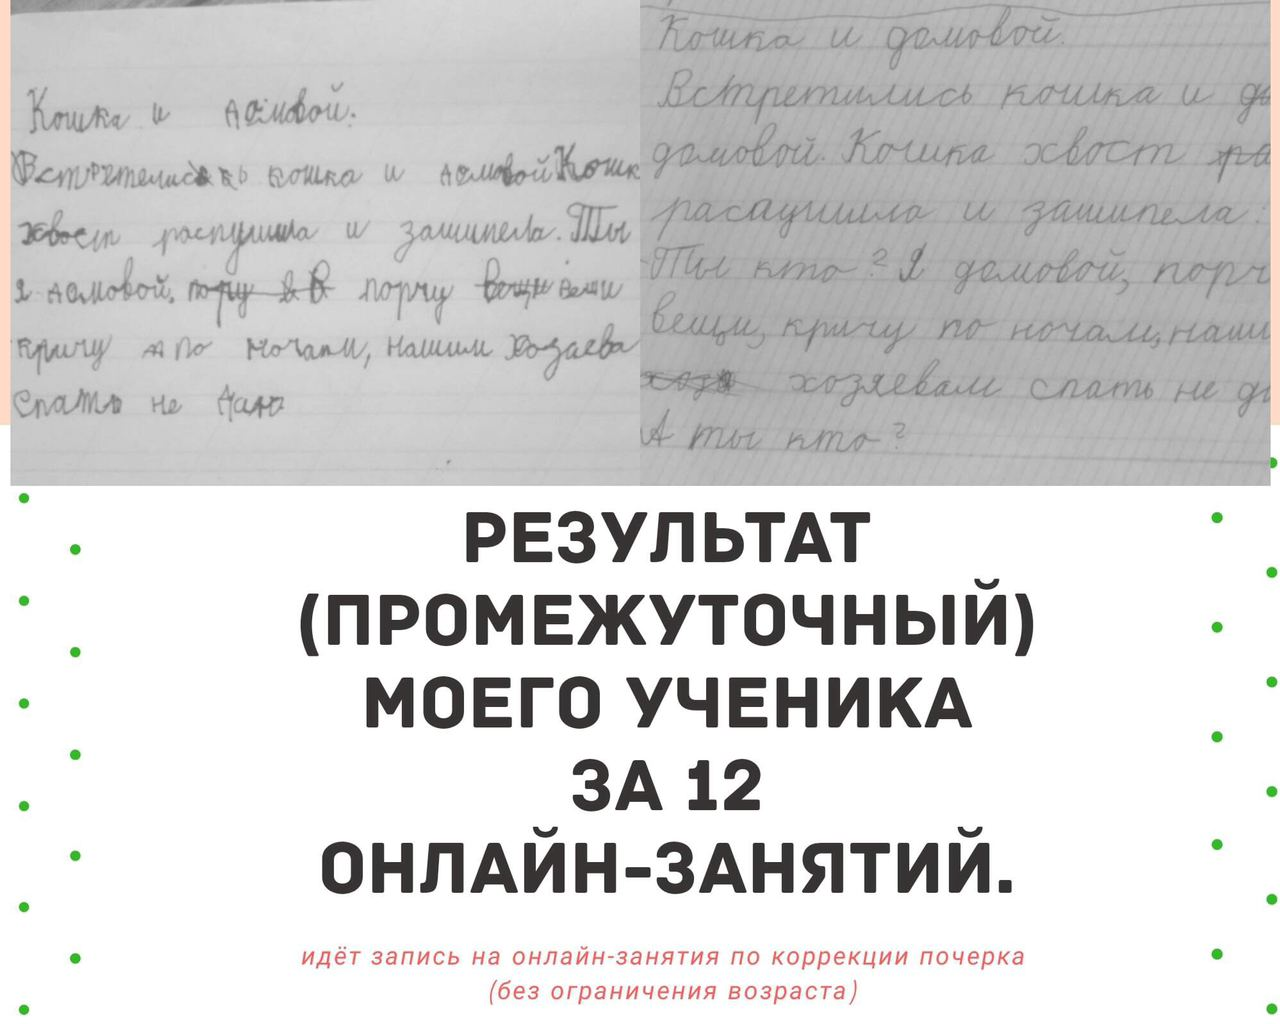 Кошка и домовой.
Встретились кошка и домовой Кошк
хвост распушила и зашипела. Ты
я домовой, порчу вещи
кричу по ночам, нашим хозаева
спать не даю
Кошка и домовой.
Встретились кошка и до
домовой. Кошка хвост ра
распушила и зашипела:
Ты кто? Я домовой, порч
вещи, кричу по ночам, наши
хозя хозяевам спать не д
А ты кто?
РЕЗУЛЬТАТ
(ПРОМЕЖУТОЧНЫЙ)
МОЕГО УЧЕНИКА
ЗА 12
ОНЛАЙН-ЗАНЯТИЙ.
идёт запись на онлайн-занятия по коррекции почерка
(без ограничения возраста)